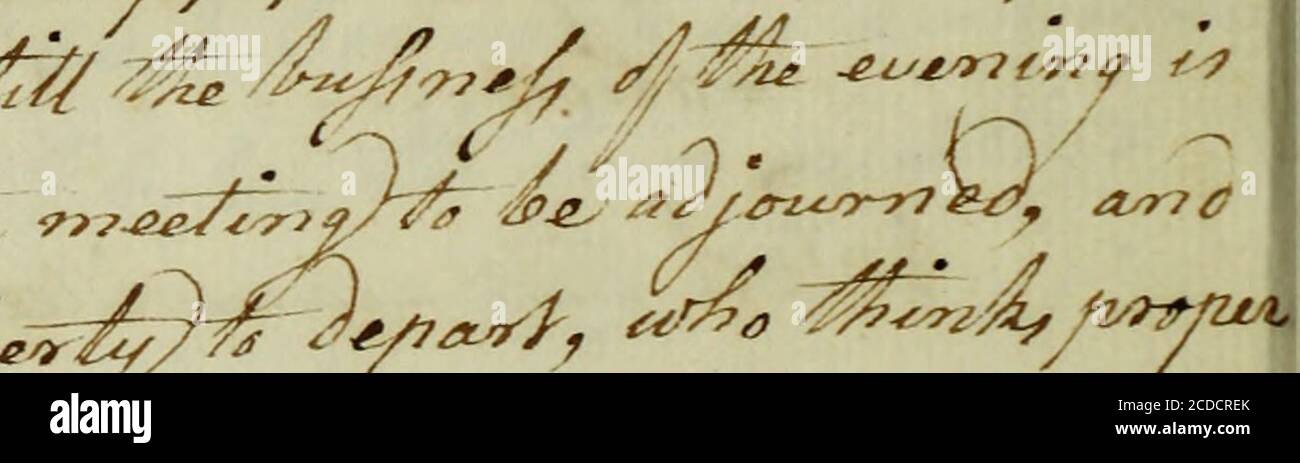 till the business of the evening is
meeting to be adjourned, and
erty to depart, who think proper
alamy
Image ID: 2CDCREK
www.alamy.com